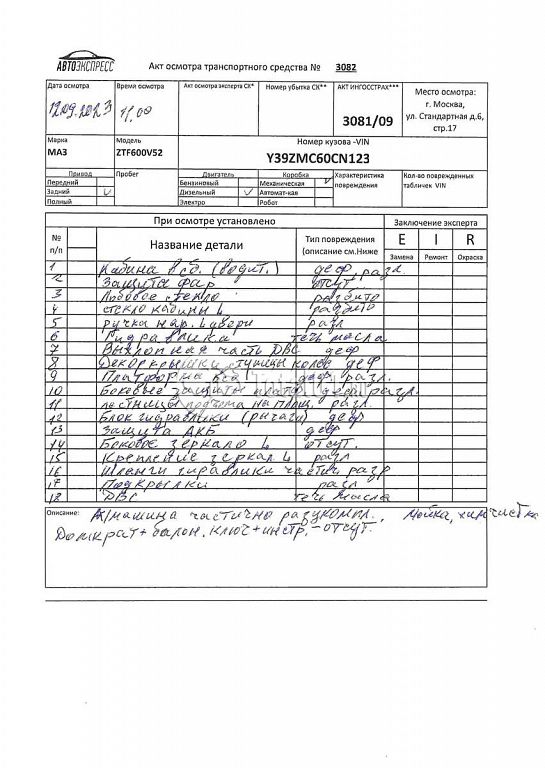 АВТОЭКСПРЕСС
Акт осмотра транспортного средства № 3082
Дата осмотра
12.09.2023
Время осмотра
11,00
Акт осмотра эксперта СК*
Номер убытка СК**
АКТ ИНГОССТРАХ***
3081/09
Место осмотра:
г. Москва,
ул. Стандартная д.6,
стр.17
Марка
МАЗ
Модель
ZTF600V52
Номер кузова -VIN
Y39ZMC60CN123
Привод
Передний
Задний ✓
Полный
Пробег
Двигатель
Бензиновый
Дизельный ✓
Электро
Коробка
Механическая ✓
Автомат-кая
Робот
Характеристика повреждения
Кол-во поврежденных табличек VIN
При осмотре установлено
Заключение эксперта
№ п/п
Название детали
Тип повреждения (описание см.Ниже
E I R
Замена Ремонт Окраска
1 Кабина в сб. (водит.) деф, разл.
2 Защита фар отсут.
3 Лобовое стекло разбито
4 стекло кабины L разбито
5 ручка нар. L двери разл
6 Гидравлика течь масла
7 Выхлопная часть ДВС деф
8 Декор крышки ступицы колес деф
9 Платформа в сб деф. разл.
10 Боковые защиты платф деф разл.
11 лестницы подъема на платф. разл.
12 Блок гидравлики (рычаги) деф
13 Защита АКБ деф
14 Боковое зеркало L отсут.
15 Крепление зеркал L разл
16 Шланги гидравлики частич разр
17 Подкрылки разл
18 ДВС течь масла
Описание: А/машина частично разукомпл., Мойка, химчистка
Домкрат + балон. ключ + инстр. - отсут.